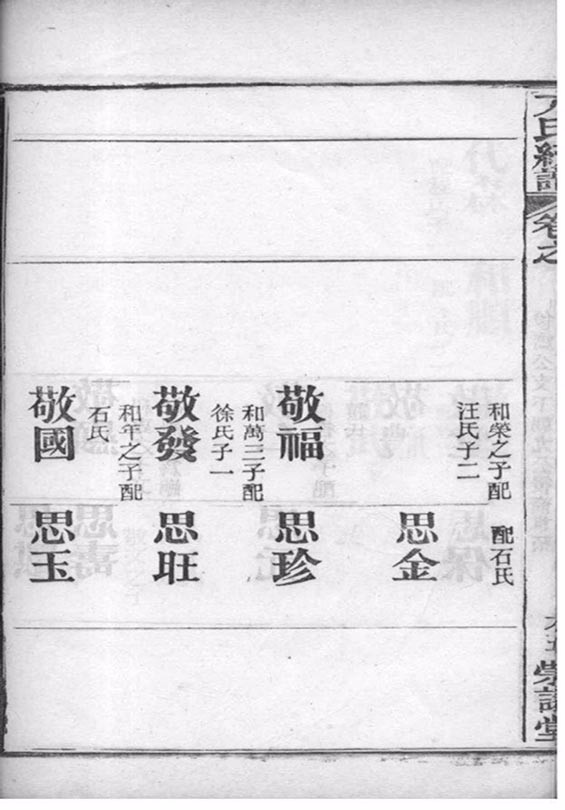 卷之
和榮之子配
汪氏子二
敬福
和萬三子配
徐氏子一
敬發
和年之子配
石氏
敬國
配石氏
思金
思珍
思旺
思玉